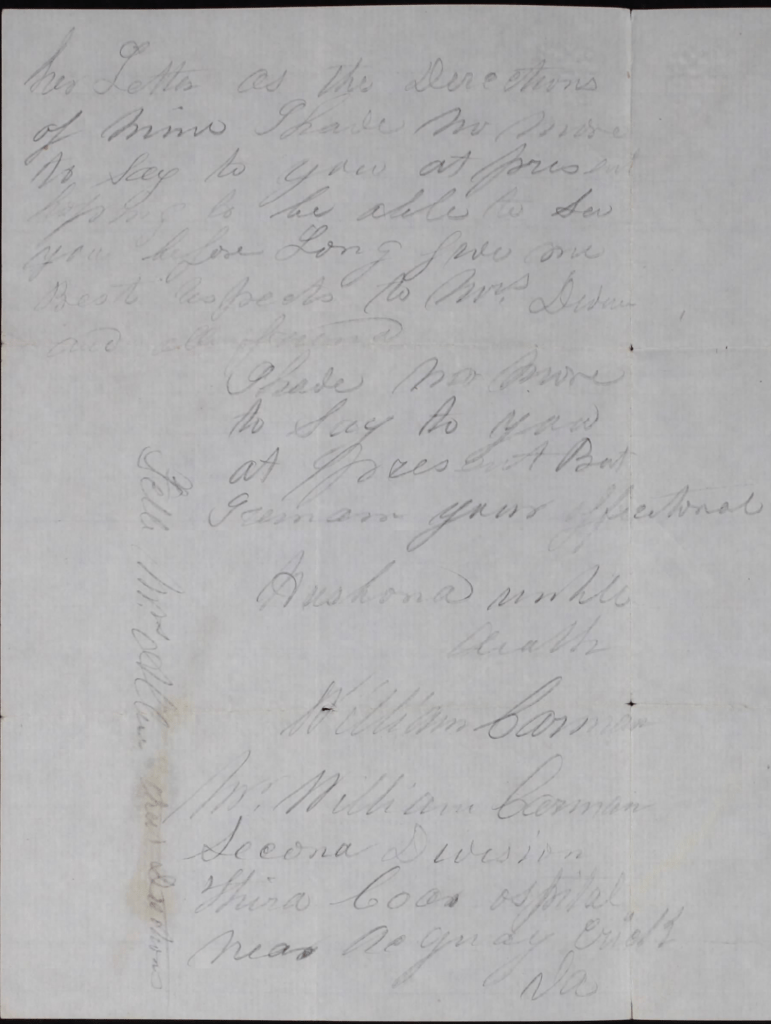 her Letter as the Derections
of mine I have no more
to Say to you at present
hoping to be able to See
you before Long give me
Best respects to Mrs.
and all friend
I have no more
to Say to you
at present But
I remain your affectional
Husbond untill
death
William Carman
Mr. William Carman
Second Division
Third Coar ospital
near Acquay Criek
Va
Tell Mrs. these Derections